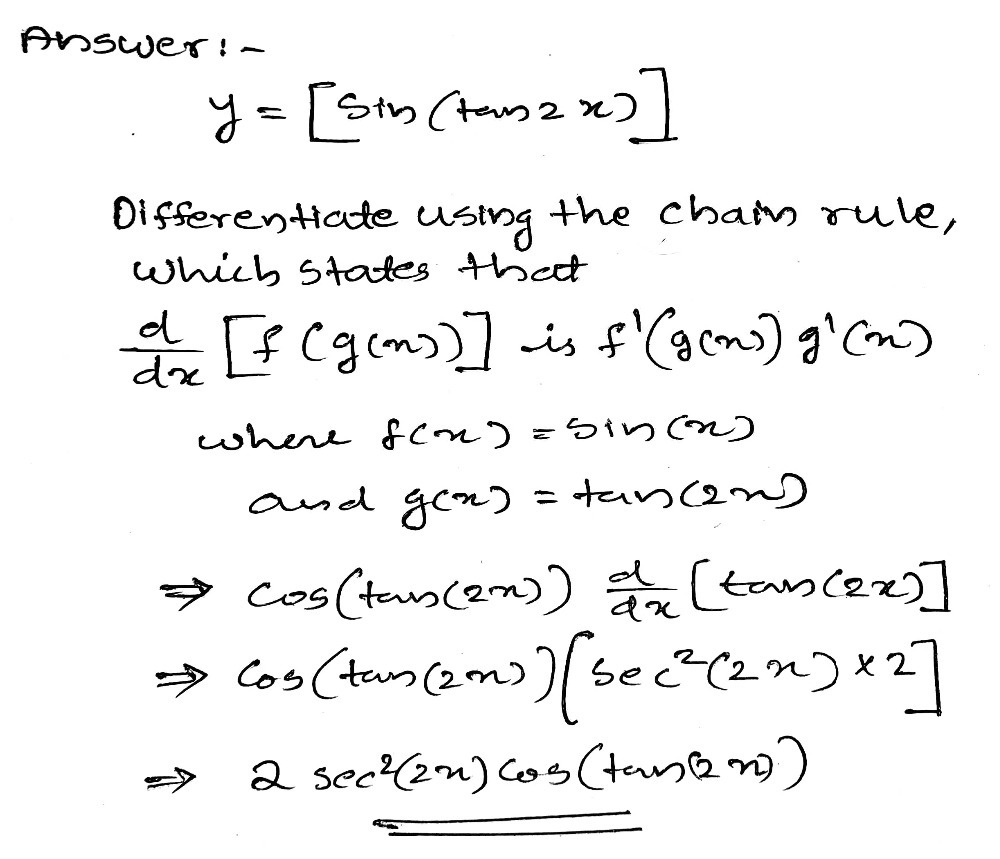 Answer:-
y = [sin(tan2x)]
Differentiate using the chain rule,
which states that
d/dx [f(g(x))] is f'(g(x)) g'(x)
where f(x) = sin(x)
and g(x) = tan(2x)
⇒ cos(tan(2x)) d/dx [tan(2x)]
⇒ cos(tan(2x)) [sec²(2x) × 2]
⇒ 2 sec²(2x) cos(tan(2x))